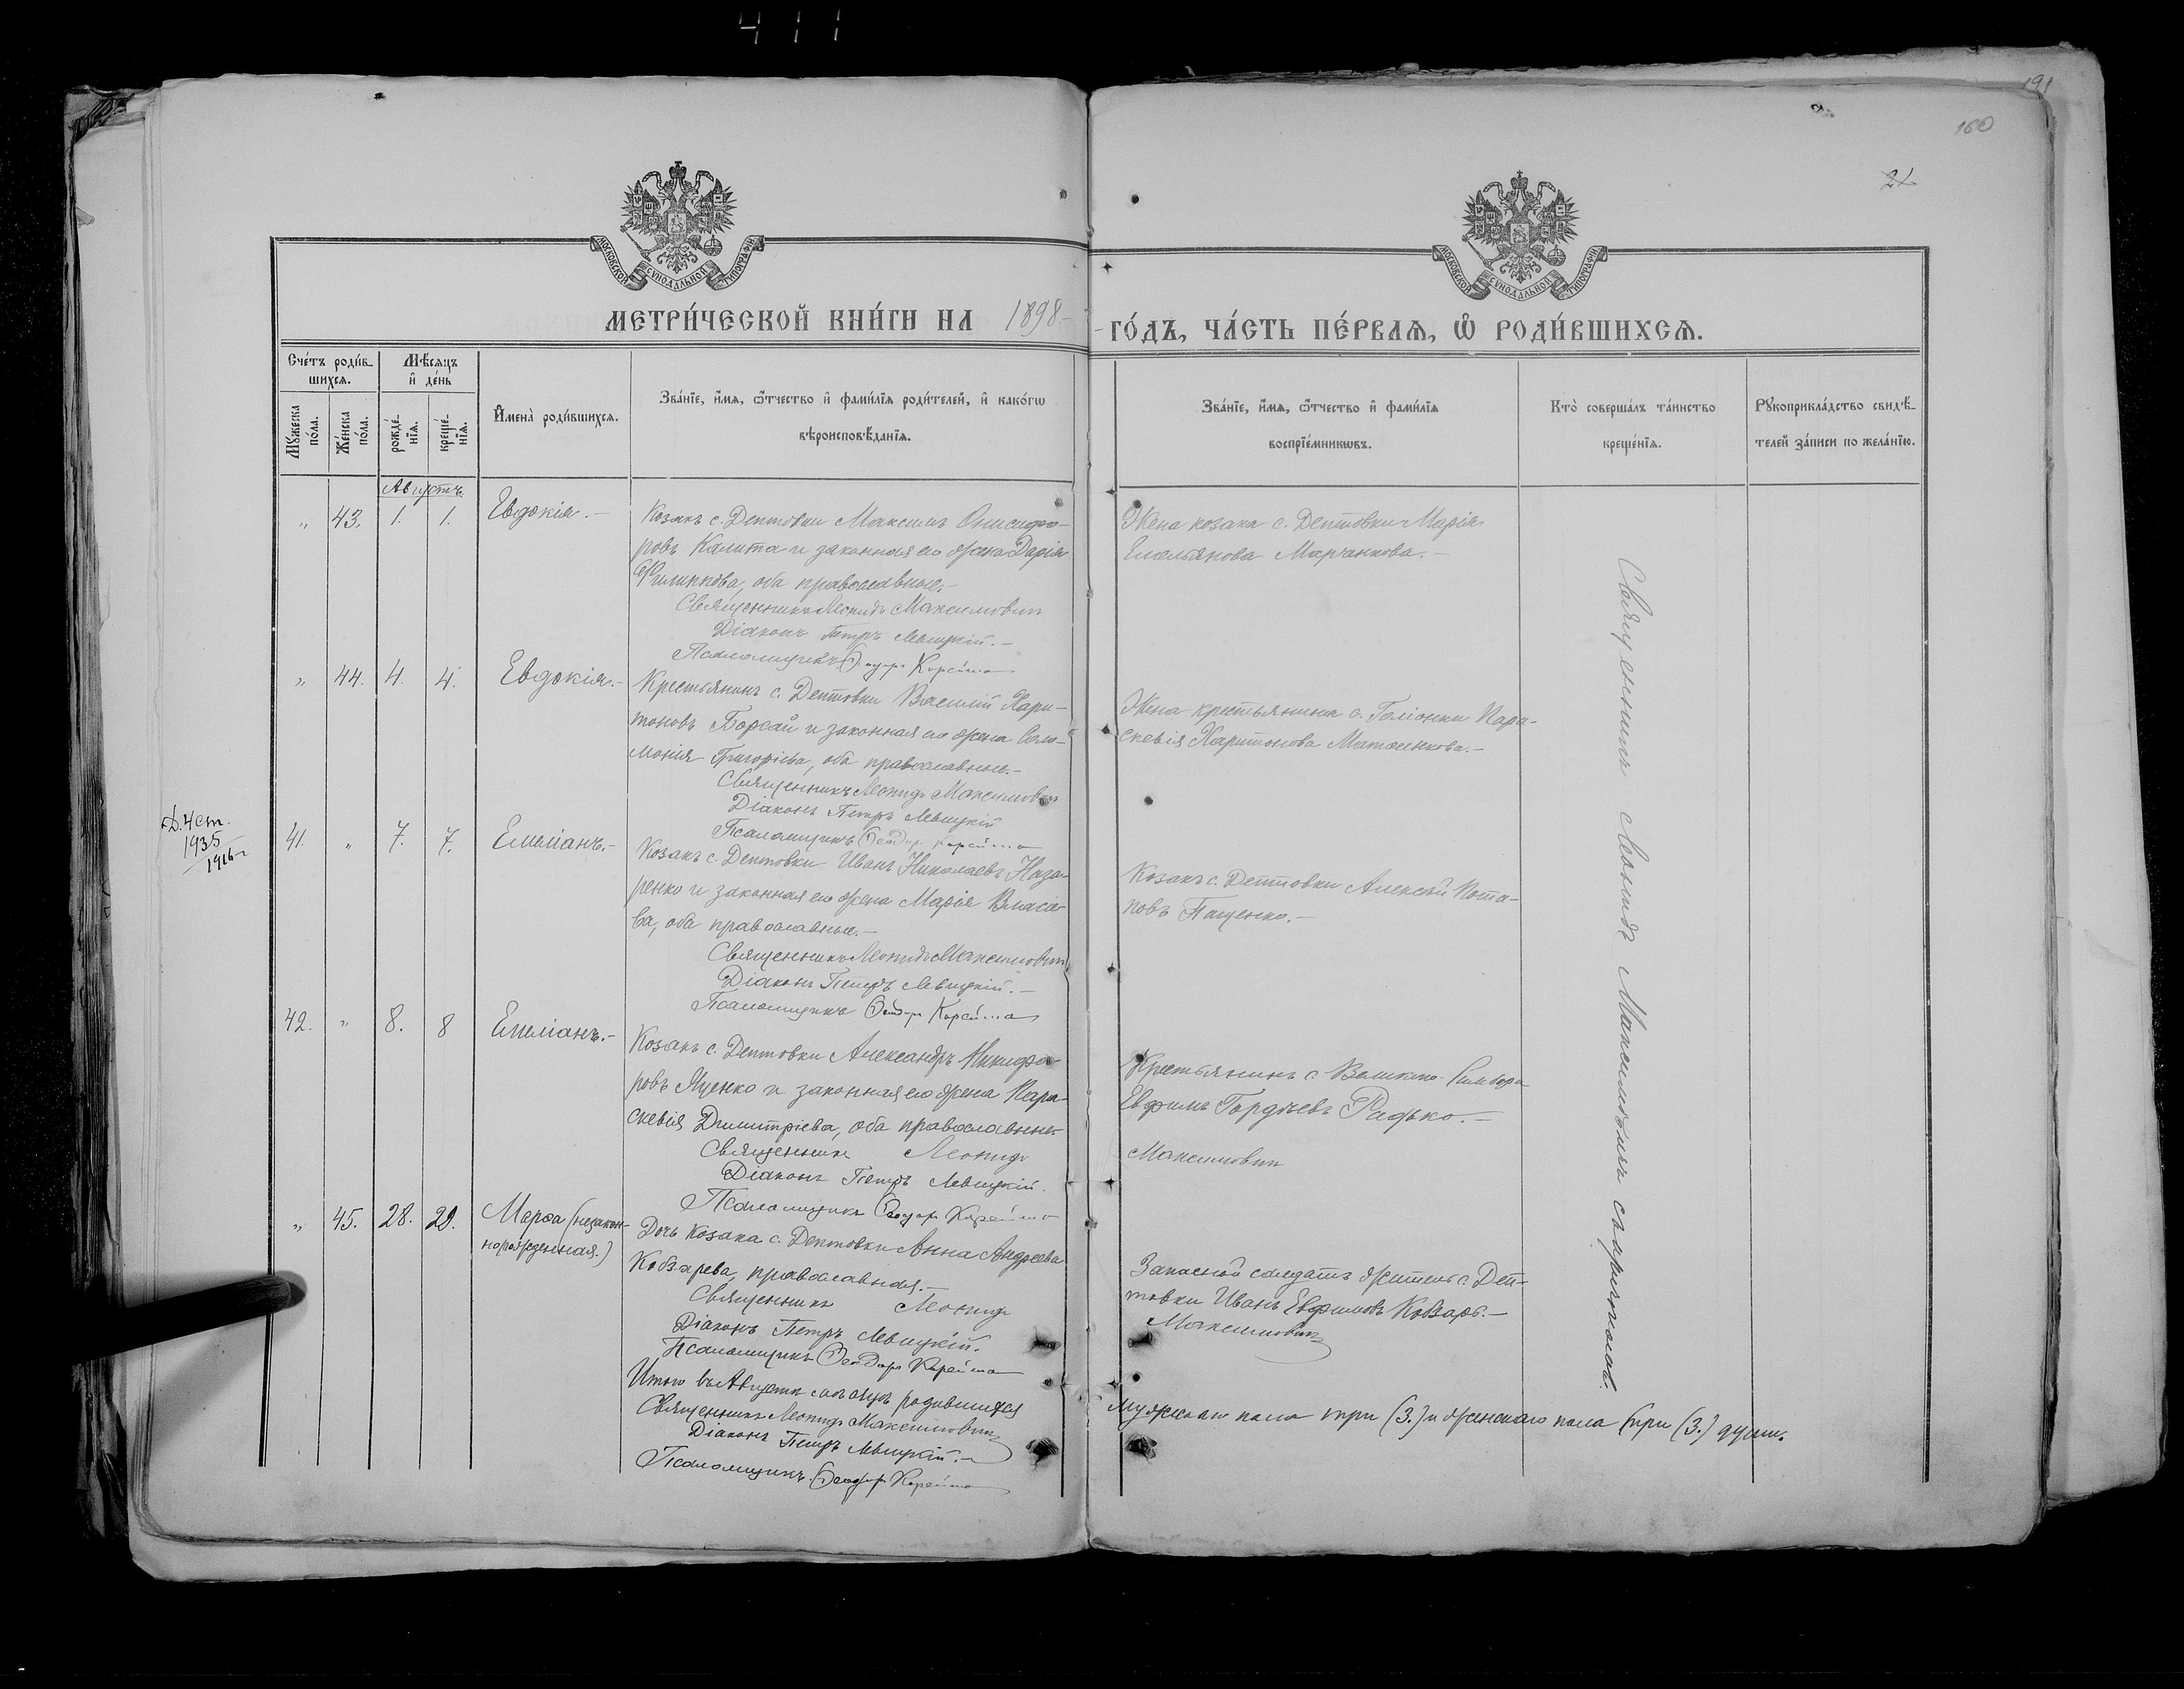 411
191
160
21
МОСКОВСКОЙ СУНОДАЛЬНОЙ ТИПОГРАФІИ
МОСКОВСКОЙ СУНОДАЛЬНОЙ ТИПОГРАФІИ
МЕТРИ́ЧЕСКОЙ КНИ́ГИ НА 1898
ГО́ДЪ, ЧА́СТЬ ПЕ́РВАѦ, Ѡ РОДИ́ВШИХСѦ.
Сче́тъ роди́в-
шихсѧ.
Мѣ́сѧцъ
и҆ де́нь
Мꙋжеска
по́ла.
Же́нска
по́ла.
рожде́-
нїѧ.
креще́-
нїѧ.
И҆мена̀ роди́вшихсѧ.
Зва́нїе, и҆́мѧ, ѻ҆́тчество и҆ фами́лїѧ роди́телей, и҆ како́гѡ
вѣроисповѣ́данїѧ.
Зва́нїе, и҆́мѧ, ѻ҆́тчество и҆ фами́лїѧ
воспрїе́мникѡвъ.
Кто̀ соверша́лъ та́инство
креще́нїѧ.
Рꙋкоприкла́дство свидѣ́-
телей за́писи по жела́нїю.
Августъ.
„ 43. 1. 1. Евдокія.-
Козакъ с. Дептовки Максимъ Онисифо-
ровъ Калита и законная его жена Дарія
Филиппова, оба православные.-
Священникъ Леонидъ Максимовичъ
Діаконъ Петръ Левицкій.-
Псаломщикъ Ѳеодоръ
Жена козака с. Дептовки Марія
Емельянова Марченкова.-
„ 44. 4. 4. Евдокія.-
Крестьянинъ с. Дептовки Василій Хари-
тоновъ Боржай и законная его жена Соло-
монія Григоріева, оба православные.-
Священникъ Леонидъ Максимовичъ
Діаконъ Петръ Левицкій
Псаломщикъ Ѳеодоръ
Жена крестьянина с. Галіонки Пара-
скевія Харитонова
1935
1916
41. „ 7. 7. Емиліанъ.-
Козакъ с. Дептовки Иванъ Николаевъ Наза-
ренко и законная его жена Марія Власіе-
ва, оба православные.-
Священникъ Леонидъ Максимовичъ
Діаконъ Петръ Левицкій.-
Псаломщикъ Ѳеодоръ
Козакъ с. Дептовки Алексій Пота-
повъ Пащенко.-
42. „ 8. 8 Емиліанъ.-
Козакъ с. Дептовки Александръ Никифо-
ровъ Яценко и законная его жена Пара-
скевія Димитріева, оба православные
Священникъ Леонидъ
Діаконъ Петръ Левицкій.
Псаломщикъ Ѳеодоръ
Крестьянинъ с.
Евфимъ Гордѣевъ Радько.-
Максимовичъ
„ 45. 28. 29. Марѳа (незакон-
норожденная.)
Дочь козака с. Дептовки Анна Андреева
Кобзарева, православная.-
Священникъ Леонидъ
Діаконъ Петръ Левицкій.
Псаломщикъ Ѳеодоръ
Запасной солдатъ житель с. Деп-
товки Иванъ Евфимовъ Кобзарь.-
Максимовичъ
Священникъ Леонидъ Максимовичъ съ причтомъ.
Итого въ Августѣ мѣсяцѣ родившихся
мужеска пола три (3.) и женскаго пола три (3.) души.
Священникъ Леонидъ Максимовичъ
Діаконъ Петръ Левицкій.-
Псаломщикъ Ѳеодоръ